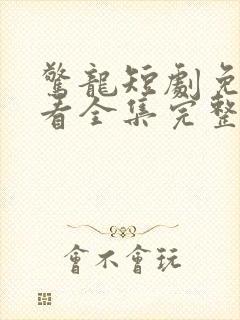 驚龍短劇免
看全集完整
會不會玩